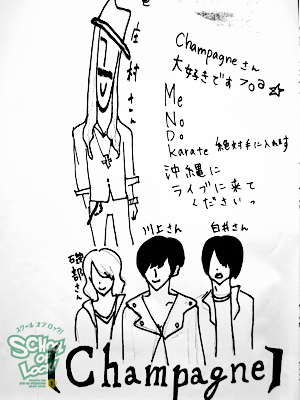 庄村さん
Champagneさん
大好きです >o<☆
Me
No
Do
Karate 絶対手に入れます
沖縄に
ライブに来て
くださいっ
川上さん
白井さん
磯部さん
スクール オブ ロック!
SCHOOL
OF
LOCK!
【Champagne】